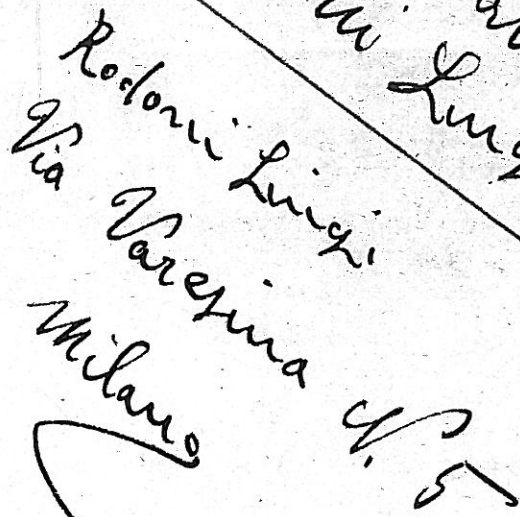 Rodoni Luigi
Via Varesina N. 5
Milano